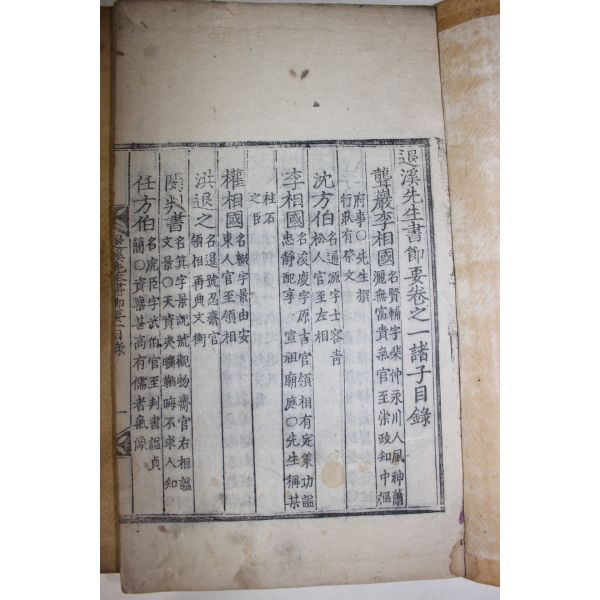 退溪先生書節要卷之一諸子目錄
聾巖李相國 名賢輔字棐仲永川人風神蕭
灑無富貴氣官至崇政知中樞
府事○先生撰
行狀有祭文
沈方伯 名通源字士容靑
松人官至左相
李相國 名浚慶字原吉官領相有定策功謚
忠靜配享 宣祖廟庭○先生稱其
柱石
之臣
權相國 名轍字景由安
東人官至領相
洪退之 名暹號忍齋官
領相再典文衡
閔判書 名箕字景說號觀物齋官右相謚
文景○天資夷曠韜晦不求人知
任方伯 名虎臣字武伯官至判書謚貞
簡○資稟甚高有儒者氣像
退溪先生書節要一目錄
一